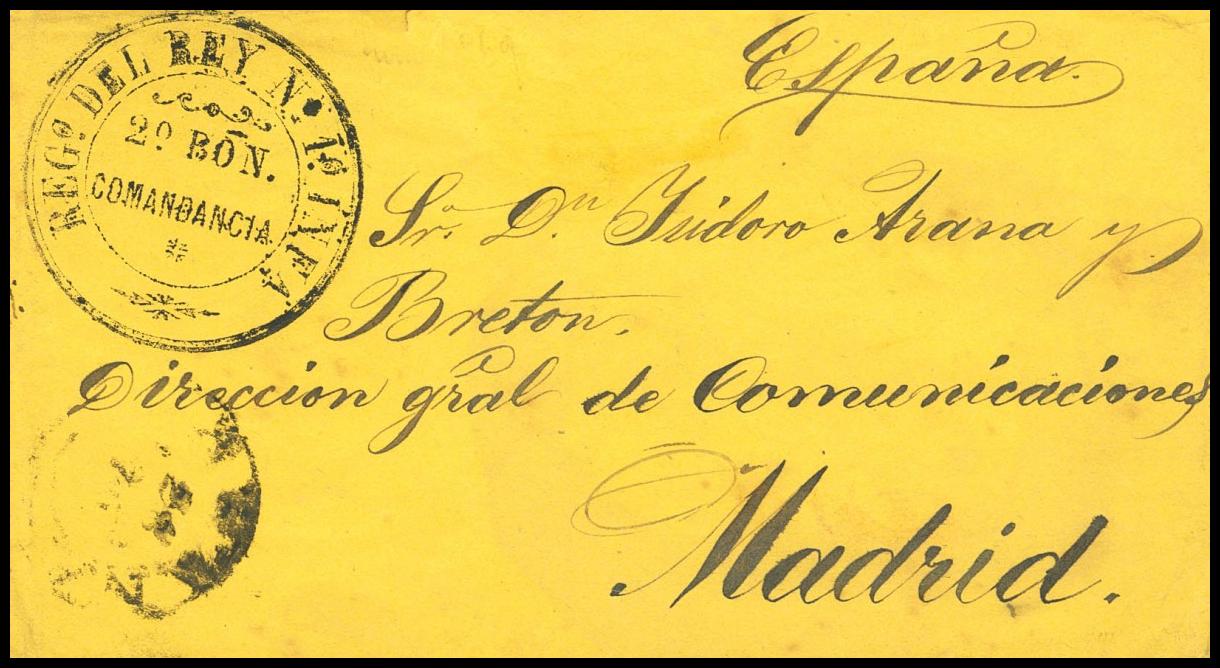 España.
REGº DEL REY Nº 1º INFA
2º BÓN.
COMANDANCIA
Sr. Dn Isidoro Arana y
Breton.
Direccion gral de Comunicaciones
Madrid.